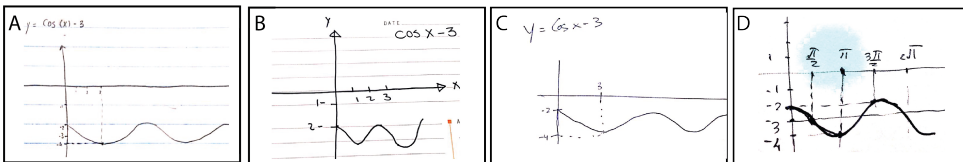 A
y = cos (x) - 3
-2
-4
B
Y
DATE
cos x - 3
X
1 2 3
1-
2-
A
C
y = cos x - 3
3
-2
-4
D
π/2 π 3π/2 2π
1
-1
-2
-3
-4